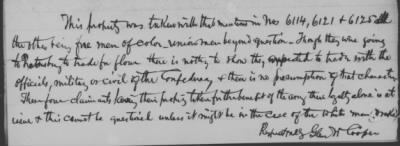 This property was taken with that mention in Nos 6114, 6121 & 6125 all
the others being free men of color - union men beyond question - Though they were going
to Petersburg to trade for flour there is nothing to show they expected to trade with the
officials, military or civil of the Confederacy & there is no presumption of that character
These four claimants having their property taken for the benefit of the army their loyalty alone is at
issue & this cannot be questioned unless it might be in the case of the white man
Respectfully Geo. W Cooper